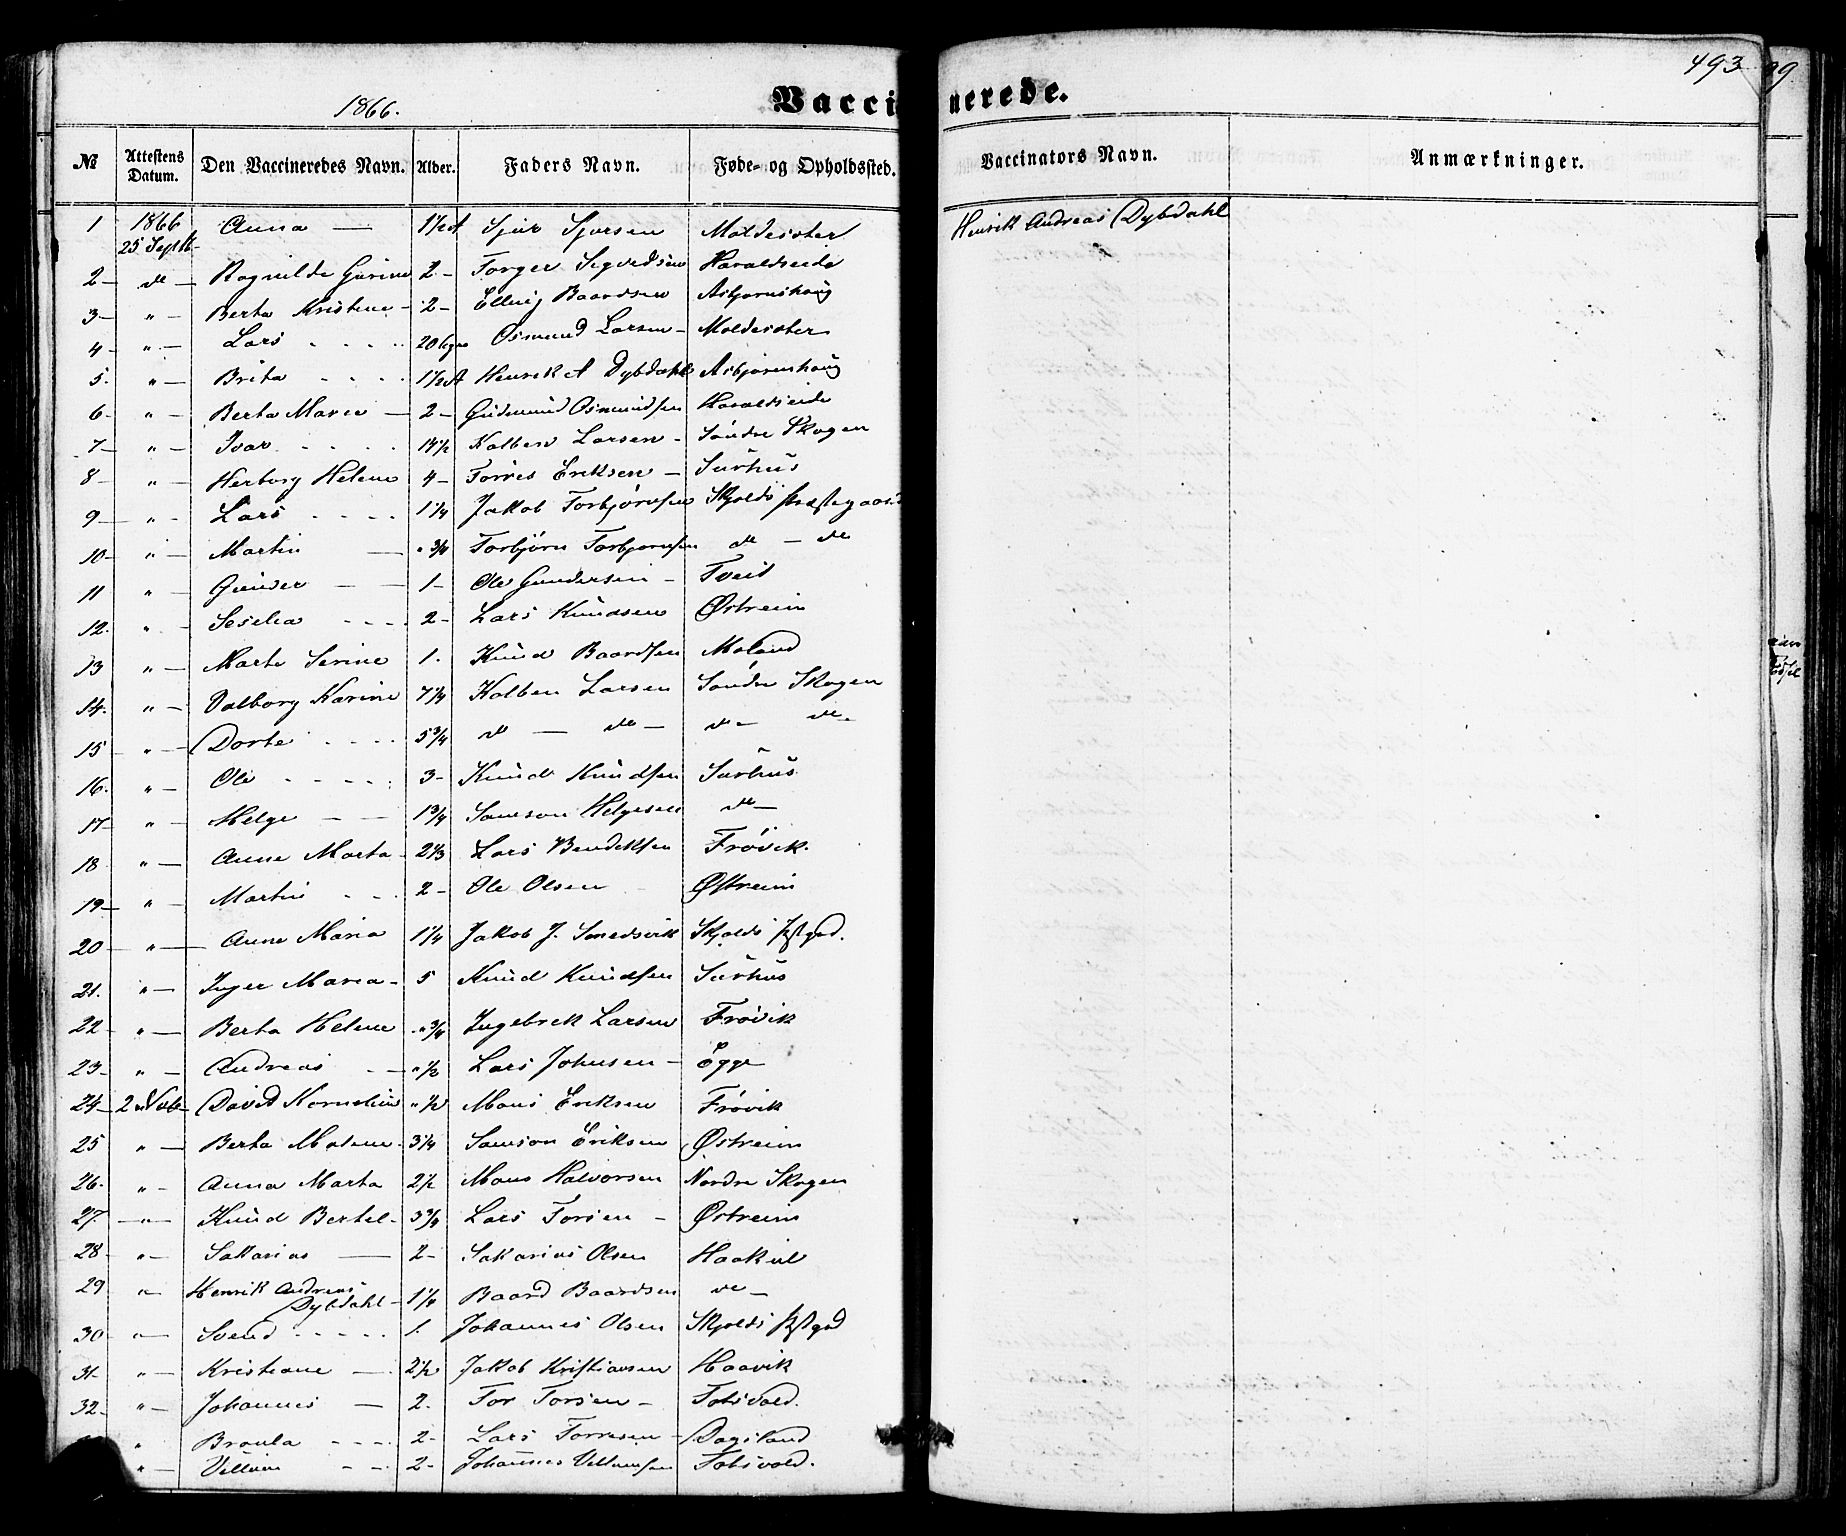 493
1866.
Vaccinerede.
№ Attestens Datum. Den Vaccineredes Navn. Alder. Faders Navn. Føde- og Opholdssted. Vaccinators Navn. Anmærkninger.
1 1866 25 Septb- Anna — 1½ A Sjur Sjursen Moldeister Henrik Andreas Dybdahl
2 - do - Ragnilde Gurine 2 - Torger Sigvedsen Haraldseide
3 - " - Berta Kristine - 2 - Elling Baardsen Asbjørnshaug
4 - " - Lars 20 Osmund Larsen - Moldeister
5. " - Brita 1½ A Henrik A Dybdahl Asbjørnshaug
6 - " - Berta Maria - 2 - Gudmund Osmundsen Haraldseide
7 - " - Ivar Kolben Larsen - Søndre Skogen
8 - " - Herborg Helene 4 - Torres Eriksen - Surhus
9 - " - Lars 1¼ Jakob Torbjørnsen Skjolds Præstegaard
10 - " - Martin — " ¾ Torbjørn Torbjørnsen do - do
11 " - Gunder — 1 - Ole Gundersen - Tveit
12. " - Seselia 2 - Lars Knudsen Østreim
13 " - Marte Serine 1. Knud Baardsen Moland
14. " - Valborg Karine 7¼ Kolben Larsen Søndre Skogen
15 " - Dorte 5¾ do — do - do - do -
16. " - Ole 3 - Knud Knudsen Surhus
17 - " - Helge — 1¾ Samson Helgesen do -
18 " - Anne Marta 2⅓ Lars Bendiksen Frøvik.
19 - " - Martin 2 - Ole Olsen Østreim
20 - " - Anne Maria 1¼ Jakob J. Smedsvik Skjolds Pstgrd.
21. " - Inger Maria - 5 Knud Knudsen Surhus
22 - " - Berta Helene " ¾ Ingebrek Larsen Frøvik
23 - " - Andreas — " ½ Lars Johnsen - Øgge
24 - 2 Novb - David Kornelius " ½ Mons Eriksen Frøvik
25 " - Berta Malene - 3¼ Samson Eriksen Østreim
26. " - Anna Marta 2½ Mons Halvorsen Nordre Skogen
27. - " - Knud Bertel - 3¾ Lars Torsen - Østreim
28 - " - Sakarias — 2 - Sakarias Olsen Haakul
29 " - Henrik Andreas Dybdahl - 1¼ Baard Baardsen do -
30 - " - Svend 1. Johannes Olsen Skjolds Pstgrd
31 - " - Kristiane — 2½ Jakob Kristiansen Haavik
32 - " - Johannes — 2. Tor Torsen - Totsvold.
" Bronla 2 - Lars Torresen - Dagsland
" - Vellum 2 - Johannes Vellumsen Totsvold.